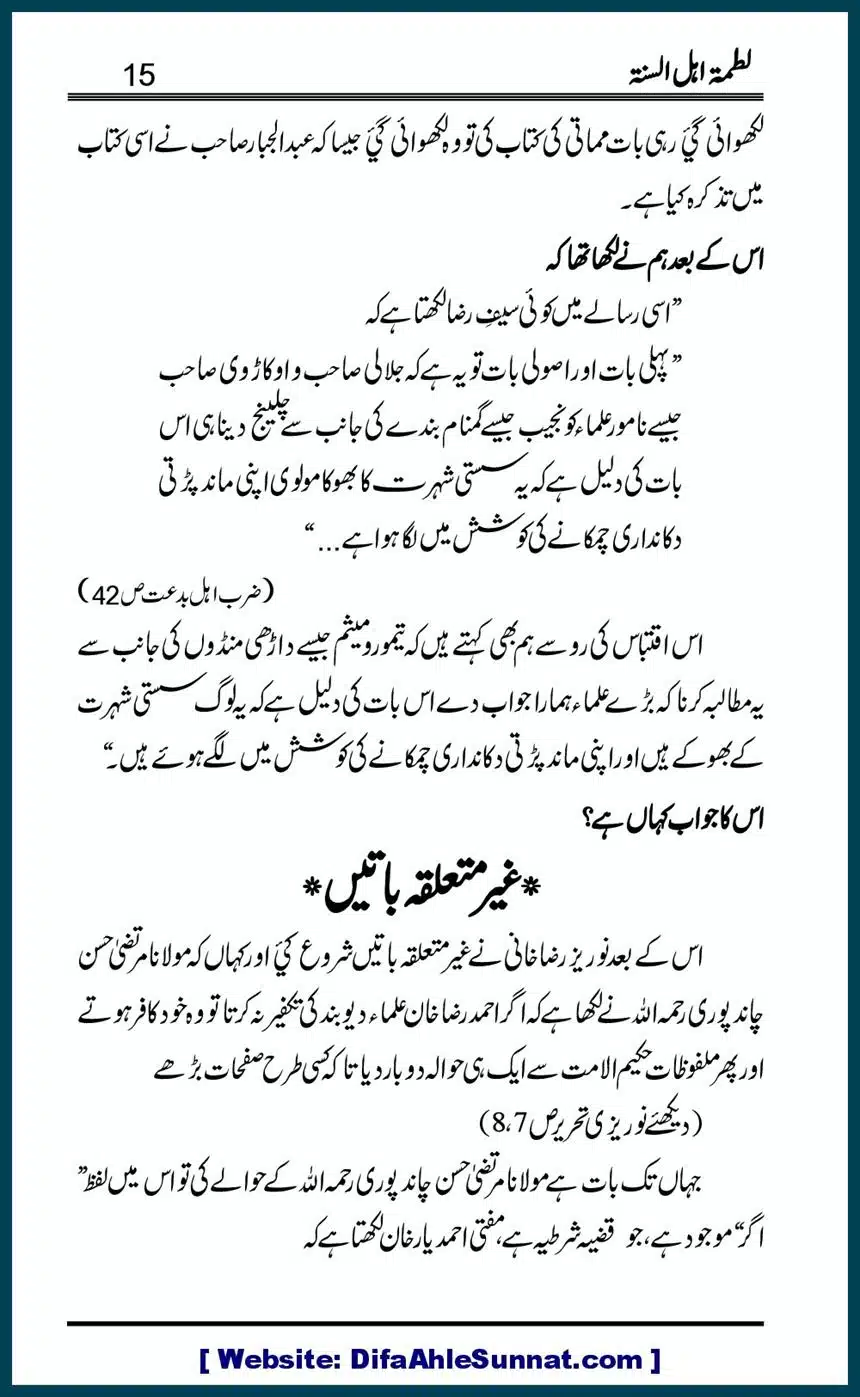 لطمۃ اہل السنۃ
15
لکھوائی گئ رہی بات مماتی کی کتاب کی تو وہ لکھوائی گئ جیسا کہ عبدالجبار صاحب نے اسی کتاب
میں تذکرہ کیا ہے۔
اس کے بعد ہم نے لکھا تھا کہ
”اسی رسالے میں کوئی سیفِ رضا لکھتا ہے کہ
”پہلی بات اور اصولی بات تو یہ ہے کہ جلالی صاحب و اوکاڑوی صاحب
جیسے نامور علماء کو نجیب جیسے گمنام بندے کی جانب سے چلینج دینا ہی اس
بات کی دلیل ہے کہ یہ سستی شہرت کا بھوکا مولوی اپنی ماند پڑتی
دکانداری چمکانے کی کوشش میں لگا ہوا ہے...“
(ضرب اہل بدعت ص42)
اس اقتباس کی رو سے ہم بھی کہتے ہیں کہ تیمور و میثم جیسے داڑھی منڈوں کی جانب سے
یہ مطالبہ کرنا کہ بڑے علماء ہمارا جواب دے اس بات کی دلیل ہے کہ یہ لوگ سستی شہرت
کے بھوکے ہیں اور اپنی ماند پڑتی دکانداری چمکانے کی کوشش میں لگے ہوئے ہیں۔“
اس کا جواب کہاں ہے؟
*غیر متعلقہ باتیں*
اس کے بعد نوریز رضاخانی نے غیر متعلقہ باتیں شروع کئ اور کہاں کہ مولانا مرتضیٰ حسن
چاند پوری رحمہ اللہ نے لکھا ہے کہ اگر احمد رضا خان علماء دیوبند کی تکفیر نہ کرتا تو وہ خود کافر ہوتے
اور پھر ملفوظات حکیم الامت سے ایک ہی حوالہ دو بار دیا تا کہ کسی طرح صفحات بڑھے
(دیکھئے نوریزی تحریر ص 8،7)
جہاں تک بات ہے مولانا مرتضیٰ حسن چاند پوری رحمہ اللہ کے حوالے کی تو اس میں لفظ ”
اگر“ موجود ہے، جو قضیہ شرطیہ ہے، مفتی احمد یار خان لکھتا ہے کہ
[ Website: DifaAhleSunnat.com ]